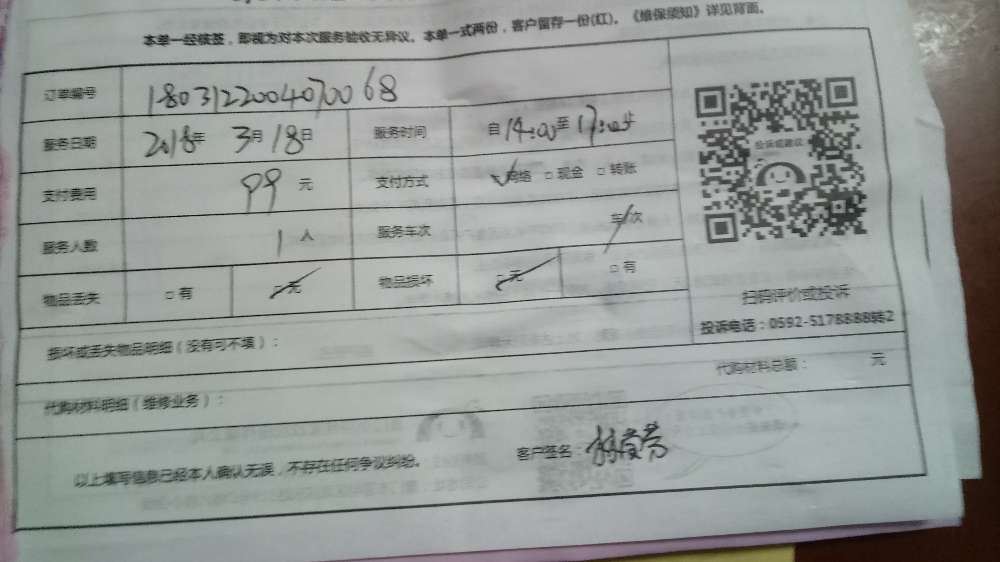 本单一经核签，即视为对本次服务验收无异议。本单一式两份，客户留存一份(红)。《维保须知》详见背面。
订单编号 18031220040700 68
服务日期 2018年 3月 18日 服务时间 自 14:00 至
支付费用 99 元 支付方式 网络 □ 现金 □ 转账
服务人数 1 人 服务车次 车/次
物品丢失 □ 有 □ 无 物品损坏 □ 无 □ 有
投诉或建议
扫码评价或投诉
投诉电话：0592-5178888转2
损坏或丢失物品明细（没有可不填）：
代购材料明细（维修业务）： 代购材料总额： 元
以上填写信息已经本人确认无误，不存在任何争议纠纷。 客户签名：